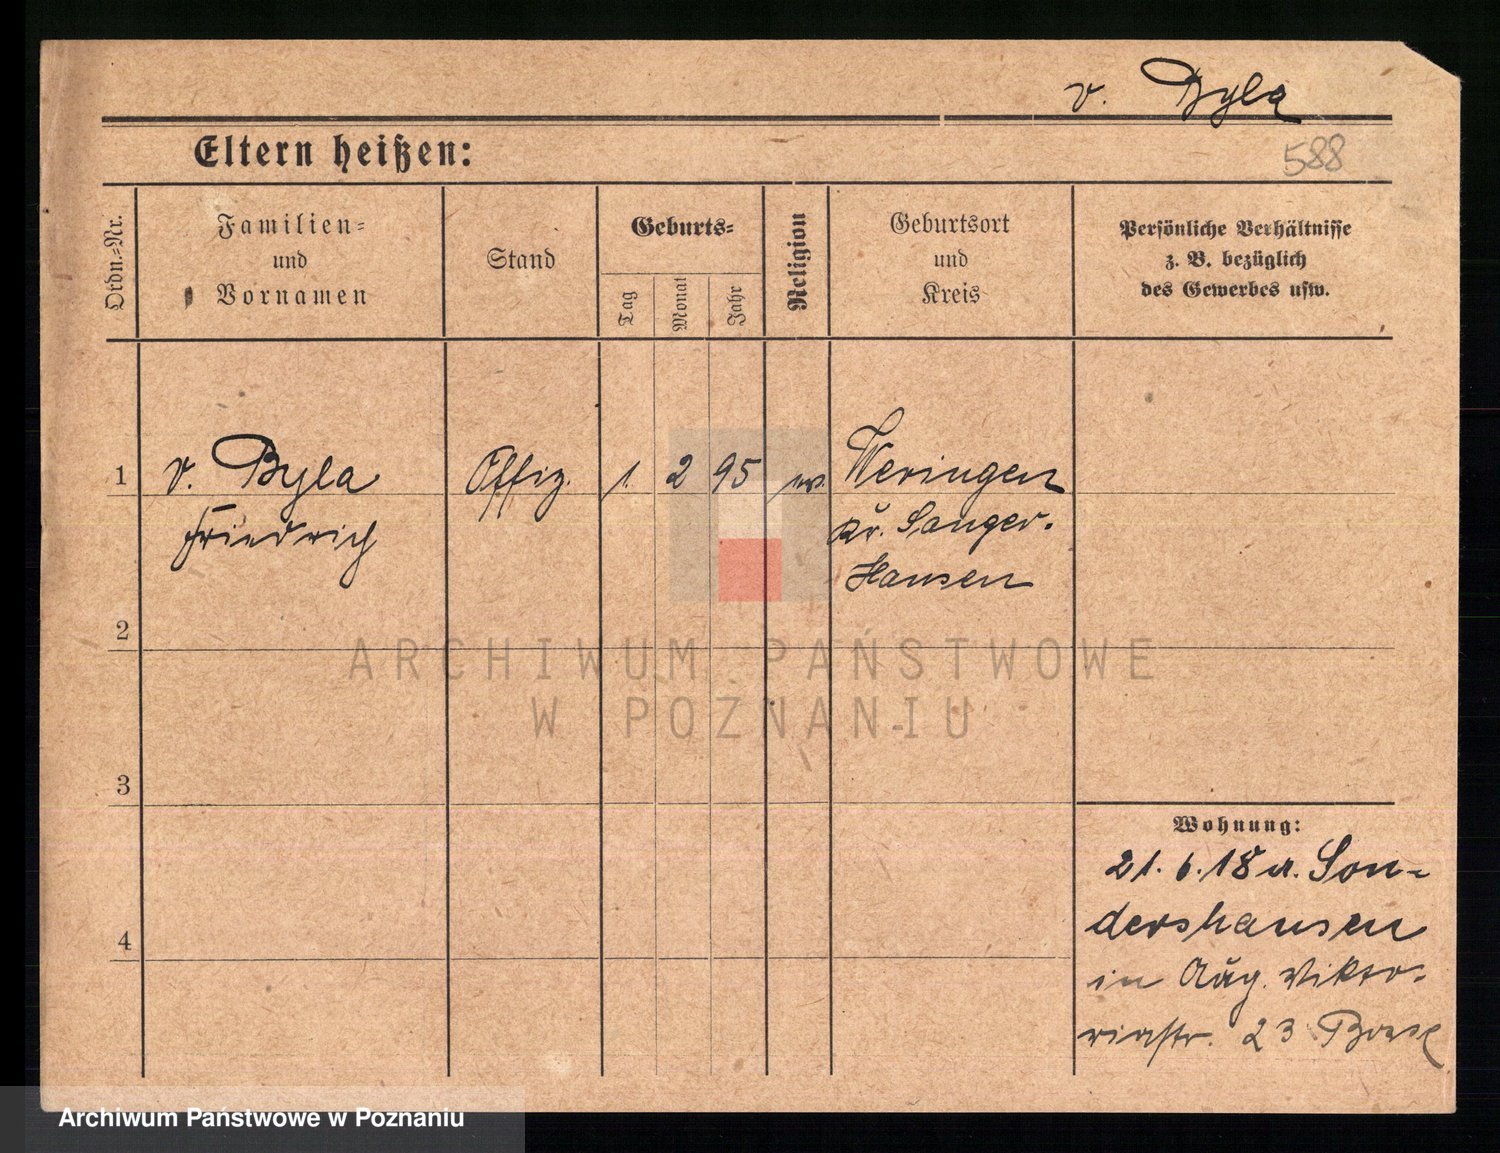 v. Byla
Eltern heißen:
588
Ordn.-Nr.
Familien-
und
Vornamen
Stand
Geburts-
Tag
Monat
Jahr
Religion
Geburtsort
und
Kreis
Persönliche Verhältnisse
z. B. bezüglich
des Gewerbes usw.
1
v. Byla
Offiz.
1. 2 95
ev.
Weringen
Friedrich
Kr. Sanger-
Hausen
2
ARCHIWUM PAŃSTWOWE
W POZNANIU
3
Wohnung:
21. 6. 18 a. Son-
dershausen
4
in Aug. Vikto-
riastr. 23
Archiwum Państwowe w Poznaniu